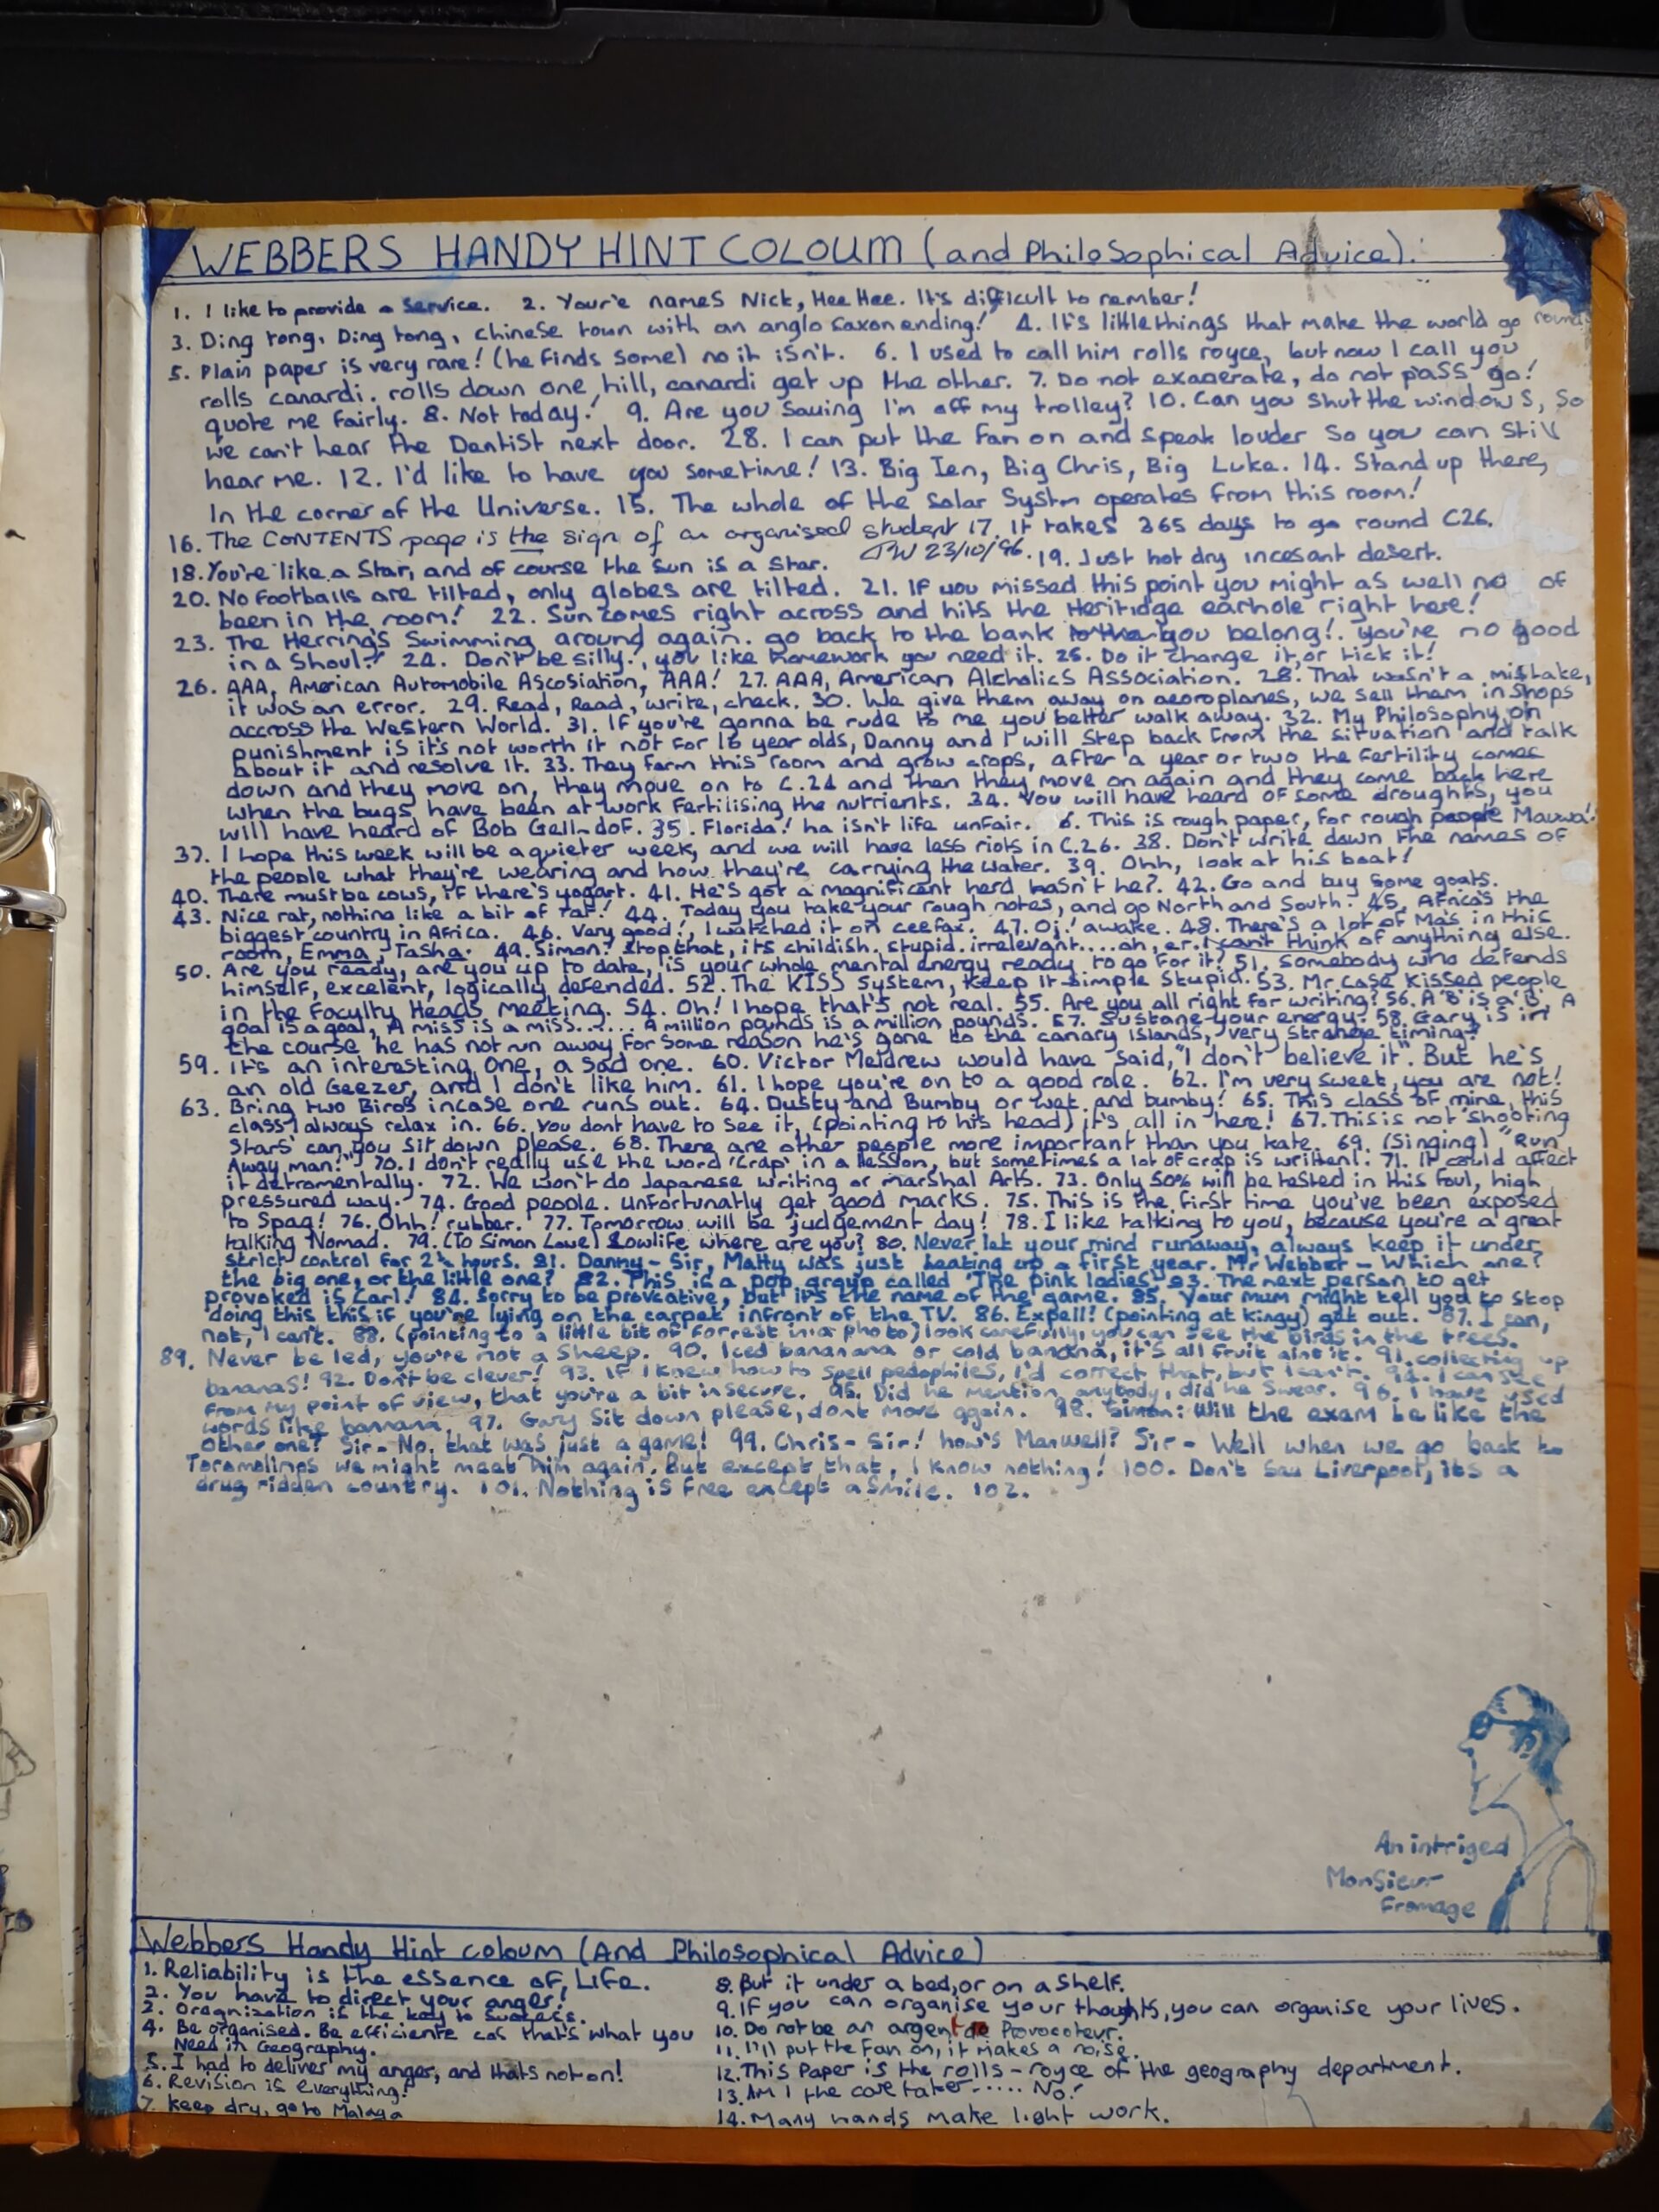 WEBBERS HANDY HINT COLOUM (and Philosophical Advice).
1. I like to provide a service. 2. Your'e names Nick, Hee Hee. It's difficult to rember!
3. Ding tong, Ding tong, chinese town with an anglo saxon ending! 4. It's little things that make the world go round
5. Plain paper is very rare! (he finds some) no it isn't. 6. I used to call him rolls royce, but now I call you
rolls canardi. rolls down one hill, canardi get up the other. 7. Do not exagerate, do not pass go!
quote me fairly. 8. Not today! 9. Are you saying I'm off my trolley? 10. Can you shut the windows, so
we can't hear the Dentist next door. 28. I can put the fan on and speak louder so you can still
hear me. 12. I'd like to have you sometime! 13. Big Ien, Big Chris, Big Luke. 14. Stand up there,
In the corner of the Universe. 15. The whole of the Solar Systm operates from this room!
16. The CONTENTS page is the sign of an organised student 17. It takes 365 days to go round C26.
18. You're like a Star, and of course the Sun is a Star. 23/10/96. 19. Just hot dry incesant desert.
20. No footballs are tilted, only globes are tilted. 21. If you missed this point you might as well no of
been in the room! 22. Sun comes right across and hits the Heritidge earhole right here!
23. The Herring's Swimming around again. go back to the bank you belong!. you're no good
in a Shoul! 24. Don't be silly!, you like homework you need it. 25. Do it change it, or tick it!
26. AAA, American Automobile Ascosiation, AAA! 27. AAA, American Alcholics Association. 28. That wasn't a mistake,
it was an error. 29. Read, Read, write, check. 30. We give them away on aeoroplanes, we sell them in shops
accross the Western World. 31. If you're gonna be rude to me you better walk away. 32. My Philosophy on
punishment is it's not worth it not for 16 year olds, Danny and I will step back from the situation and talk
about it and resolve it. 33. They farm this room and grow crops, after a year or two the fertility comes
down and they move on, they move on to C.24 and then they move on again and they come back here
when the bugs have been at work fertilising the nutrients. 34. You will have heard of some droughts, you
will have heard of Bob Gell-dof. 35. Florida! ha isn't life unfair. 6. This is rough paper, for rough people
37. I hope this week will be a quieter week, and we will have less riots in C.26. 38. Don't write down the names of
the people what they're wearing and how they're carrying the water. 39. Ohh, look at his boat!
40. There must be cows, if there's yogart. 41. He's got a magnificant herd, hasn't he?. 42. Go and buy some goats.
43. Nice rat, nothing like a bit of rat! 44. Today you take your rough notes, and go North and South. 45. Africa's the
biggest country in Africa. 46. Very good!, I watched it on ceefax. 47. Oi! awake. 48. There's a lot of Ma's in this
room, Emma, Tasha. 49. Simon! stop that, its childish. stupid. irrelevant.... ah, er. I can't think of anything else.
50. Are you ready, are you up to date, is your whole mental energy ready to go for it? 51. Somebody who defends
himself, excelent, logically defended. 52. The KISS System, Keep It Simple Stupid. 53. Mr. Case kissed people
in the Faculty Heads meeting. 54. Oh! I hope that's not real. 55. Are you all right for writing? 56. A 'B' is a 'B', A
goal is a goal, A miss is a miss...... A million pounds is a million pounds. 57. Sustane your energy. 58. Gary is in
the course he has not run away for some reason he's gone to the canary Islands, very strange timing?
59. It's an interesting one, a sad one. 60. Victor Meldrew would have said, "I don't believe it". But he's
an old Geezer, and I don't like him. 61. I hope you're on to a good role. 62. I'm very sweet, you are not!
63. Bring two Biros incase one runs out. 64. Dusty and Bumby or wet and bumby! 65. This class of mine, this
class I always relax in. 66. You dont have to see it, (pointing to his head) it's all in here! 67. This is not 'Shooting
Stars' can you sit down please. 68. There are other people more important than you kate. 69. (Singing) "Run
Away man!" 70. I don't really use the word 'Crap' in a lesson, but sometimes a lot of crap is written!. 71. It could affect
it detromentally. 72. We won't do Japanese writing or marshal Arts. 73. Only 50% will be tested in this foul, high
pressured way. 74. Good people. unfortunatly get good marks. 75. This is the first time you've been exposed
to Spag! 76. Ohh! rubber. 77. Tomorrow will be judgement day! 78. I like talking to you, because you're a great
talking Nomad. 79. (To Simon Lowe) Lowlife where are you? 80. Never let your mind runaway, always keep it under
strict control for 2½ hours. 81. Danny - Sir, Matty was just beating up a first year. Mr Webber - Which one?
the big one, or the little one? 82. This is a pop group called 'The pink ladies' 83. The next person to get
provoked is Carl! 84. Sorry to be provcative, but it's the name of the game. 85. Your mum might tell you to stop
doing this this if you're lying on the carpet infront of the TV. 86. Expell! (pointing at Kingy) get out. 87. I can,
not, I can't. 88. (pointing to a little bit of forrest in a photo) look carefully, you can see the birds in the trees.
89. Never be led, you're not a sheep. 90. Iced bananana or cold banana, it's all fruit aint it. 91. collecting up
bananas! 92. Don't be clever! 93. If I knew how to spell pedophiles, I'd correct that, but I can't. 94. I can see
from my point of view, that you're a bit insecure. 95. Did he mention anybody, did he swear. 96. I have used
words like bannana. 97. Gary Sit down please, dont move again. 98. Simon: Will the exam be like the
other one? Sir - No, that was just a game! 99. Chris - Sir! how's Maxwell? Sir - Well when we go back to
Toromolinos we might meet him again. But except that, I know nothing! 100. Don't say Liverpool, its a
drug ridden country. 101. Nothing is free except a smile. 102.
An intriged
Monsieur
Fromage
Webbers Handy Hint coloum (And Philosophical Advice)
1. Reliability is the essence of Life.
2. You have to direct your anger!
2. Oragnization is the key to success.
4. Be organised. Be efficiente cos that's what you
Need in Geography.
5. I had to deliver my anger, and thats not on!
6. Revision is everything!
7. keep dry, go to Malaga
8. But it under a bed, or on a shelf.
9. If you can organise your thoughts, you can organise your lives.
10. Do not be an argent de Provocoteur.
11. I'll put the Fan on, it makes a noise.
12. This Paper is the rolls-royce of the geography department.
13. Am I the care taker ..... No!
14. Many hands make light work.